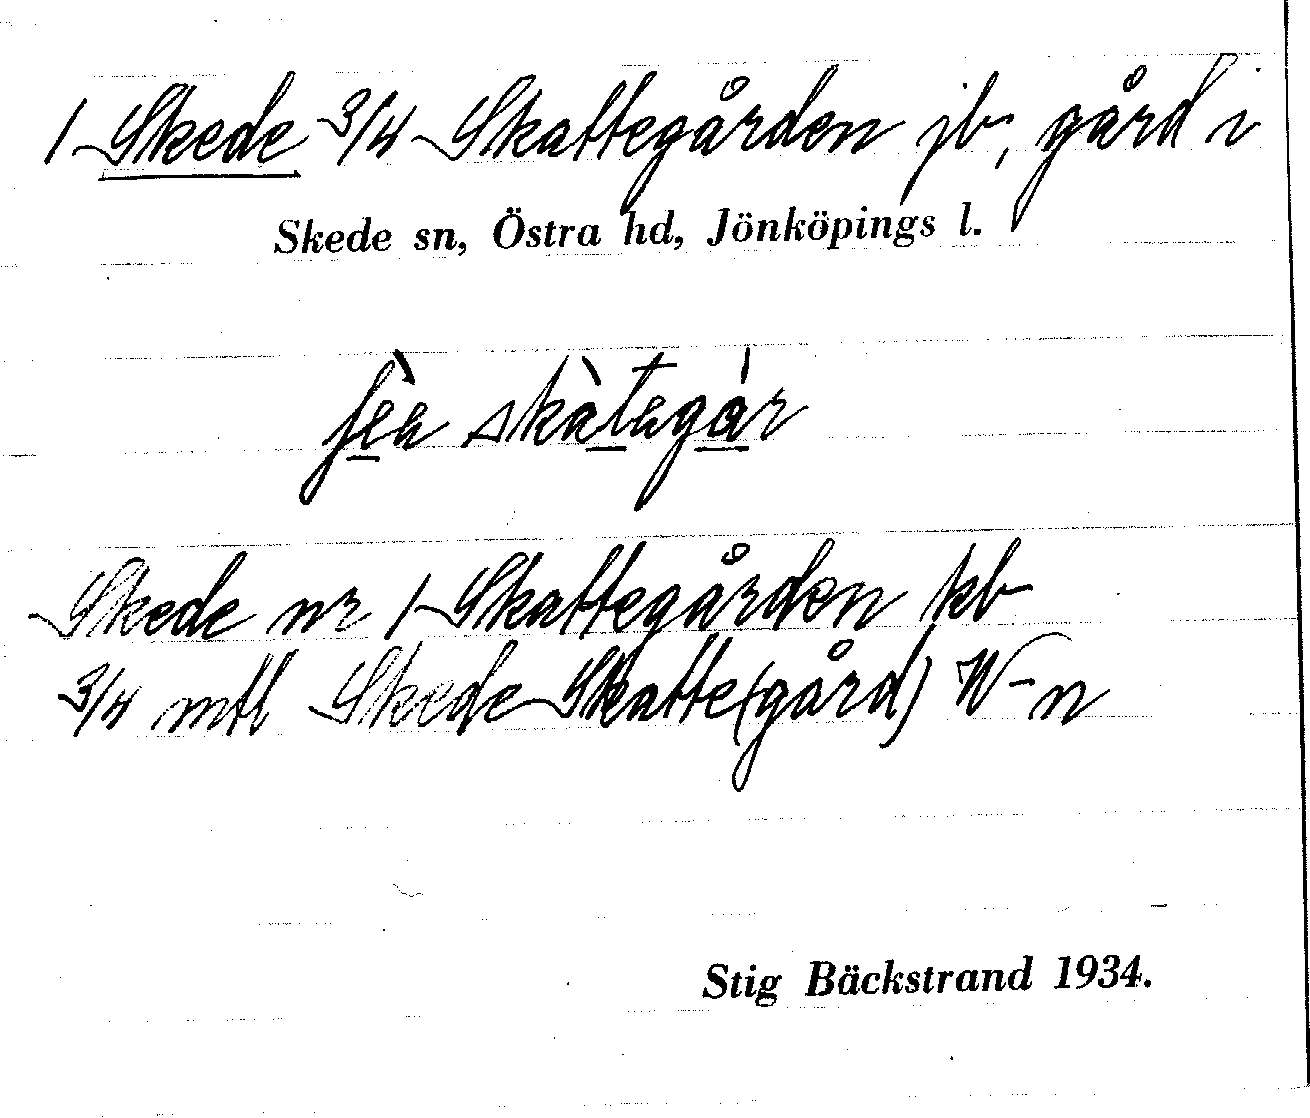 1 Skede 3/4 Skattegården jb, gård i
Skede sn, Östra hd, Jönköpings l.
skàtegår
Skede nr 1 Skattegården kb
3/4 mtl Skede Skatte(gård) W-n
Stig Bäckstrand 1934.